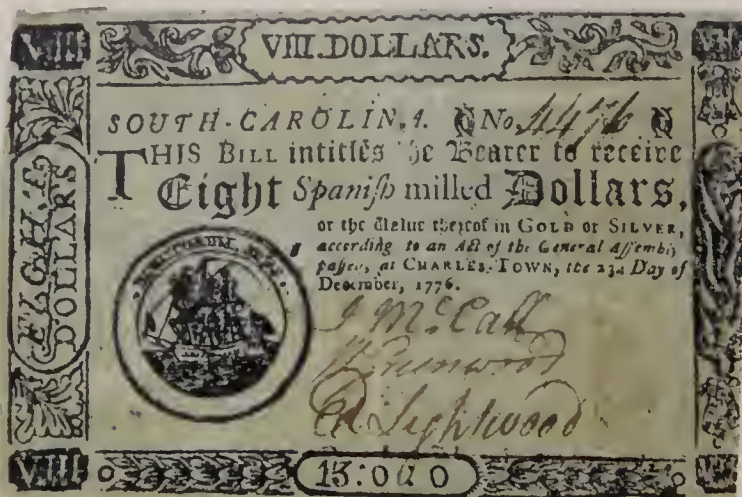 VIII
VIII. DOLLARS.
SOUTH-CAROLINA. No. 4476
THIS BILL intitles the Bearer to receive
Eight Spanish milled Dollars,
or the Value thereof in GOLD or SILVER,
according to an Act of the General Assembly,
passed, at CHARLES-TOWN, the 23d Day of
December, 1776.
EIGHT
DOLLARS
J McCall
Greenwood
E Lightwood
VIII
13:000